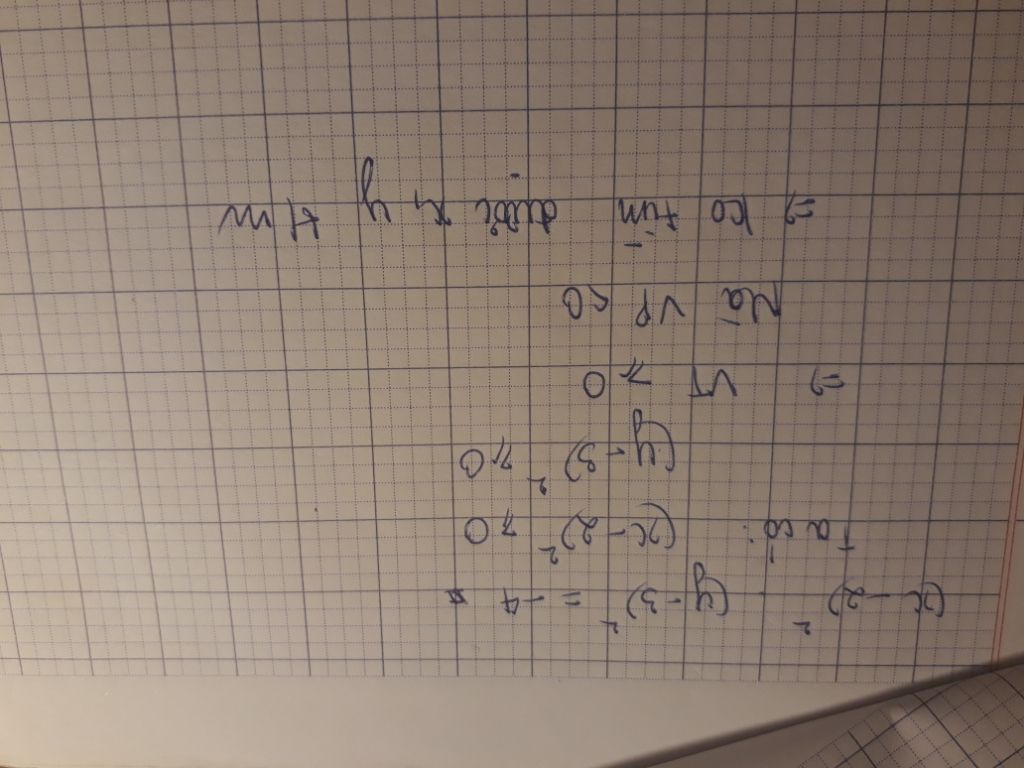 (x - 2)² . (y - 3)² = - 4
Ta có: (x - 2)² ≥ 0
(y - 3)² ≥ 0
=> VT ≥ 0
Mà VP < 0
=> ko tìm được x, y t/m